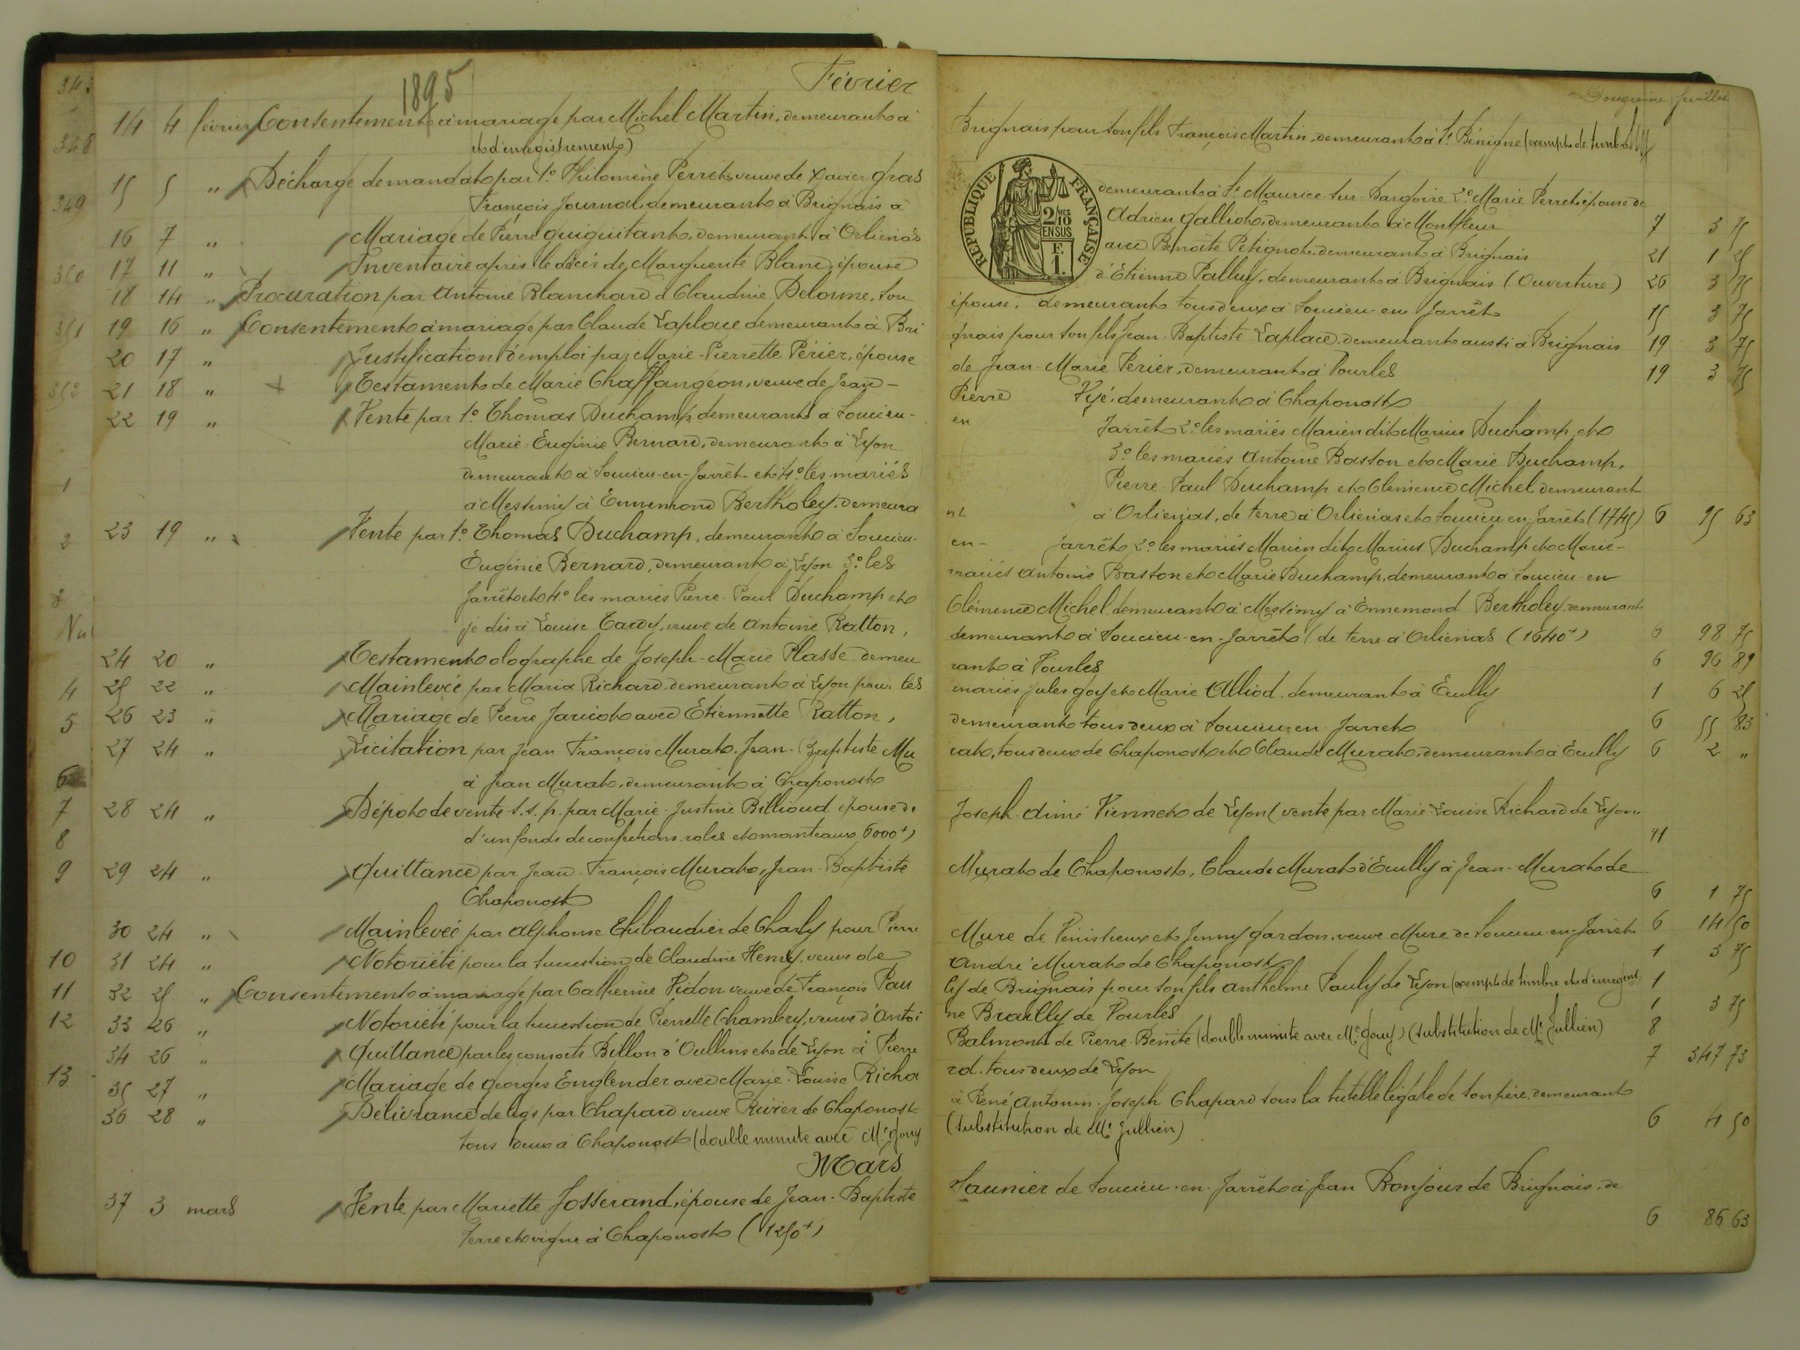 1895
Février
Douzième feuillet
14 4 février Consentement à mariage par Michel Martin, demeurant à Brignais pour son fils François Martin, demeurant à St Bénigne (exempt de timbre
et d'enregistrement)
15 5 " Décharge de mandat par 1º Philomène Perret veuve de Xavier Gras demeurant à St Maurice sur Dargoire 2º Marie Perret épouse de
François Journal demeurant à Brignais à Adrien Galliot, demeurant à Montfleur 7 3 75
16 7 " Mariage de Pierre Guiguitant, demeurant à Orliénas avec Benoîte Petignot, demeurant à Brignais 21 1 25
17 11 " Inventaire après le décès de Marguerite Blanc, épouse d'Etienne Palluy, demeurant à Brignais (Ouverture) 26 3 75
18 14 " Procuration par Antoine Blanchard & Claudine Delorme, son épouse, demeurant tous deux à Soucieu en Jarrêt 15 3 75
19 16 " Consentement à mariage par Claude Laplace demeurant à Brignais pour son fils Jean Baptiste Laplace, demeurant aussi à Brignais 19 3 75
20 17 " Justification d'emploi par Marie-Pierrette Périer, épouse de Jean-Marie Périer, demeurant à Vourles 19 3 75
21 18 " Testament de Marie Chaffangeon, veuve de Jean-Pierre demeurant à Chaponost
22 19 " Vente par 1º Thomas Duchamp, demeurant à Soucieu-en Jarrêt 2º les mariés Marien dit Marius Duchamp et
Marie-Eugénie Bernard, demeurant à Lyon 3º les mariés Antoine Baston et Marie Duchamp,
demeurant à Soucieu-en-Jarrêt et 4º les mariés Pierre-Paul Duchamp et Clémence Michel demeurant
à Messimy à Ennemond Bertholey, demeurant à Orliénas, de terre à Orliénas et Soucieu en Jarrêt (1745) 6 95 63
23 19 " Vente par 1º Thomas Duchamp, demeurant à Soucieu-en-Jarrêt 2º les mariés Marien dit Marius Duchamp et Marie-
Eugénie Bernard, demeurant à Lyon 3º les mariés Antoine Baston et Marie Duchamp, demeurant à Soucieu-en
Jarrêt et 4º les mariés Pierre-Paul Duchamp et Clémence Michel, demeurant à Messimy à Ennemond Bertholey, demeurant
je dis à Louise Tardy, veuve de Antoine Ratton, demeurant à Soucieu-en-Jarrêt (de terre à Orliénas (1640f) 6 98 75
24 20 " Testament olographe de Joseph-Marie Plasse demeurant à Vourles 6 96 89
25 22 " Mainlevée par Maria Richard demeurant à Lyon pour les mariés Jules Goy et Marie Alliod, demeurant à Ecully 1 6 25
26 23 " Mariage de Pierre Jaricot avec Etiennette Ratton, demeurant tous deux à Soucieu en Jarret 6 55 83
27 24 " Licitation par Jean François Murat, Jean-Baptiste Murat, tous deux de Chaponost et Claude Murat, demeurant à Ecully 6 2 "
à Jean Murat, demeurant à Chaponost
28 24 " Dépôt de vente s.s.p. par Marie-Justine Billioud épouse de Joseph-Aimé Viennet de Lyon (vente par Marie Louise Richard de Lyon
d'un fonds de confections robes et manteaux, 6000f) 11
29 24 " Quittance par Jean-François Murat, Jean-Baptiste Murat de Chaponost, Claude Murat d'Ecully à Jean-Murat de
Chaponost 6 1 75
30 24 " Mainlevée par Alphonse Thibaudier de Charly pour Pierre Mure de Vénissieux et Jenny Gardon, veuve Mure de Soucieu-en-Jarrêt 6 14 50
31 24 " Notoriété pour la succession de Claudine Henry, veuve de André Murat de Chaponost 1 3 75
32 25 " Consentement à mariage par Catherine Vidon veuve de François Pauly de Brignais pour son fils Anthelme Pauly de Lyon (exempt de timbre et d'enregt) 1
33 26 " Notoriété pour la succession de Pierrette Chambry, veuve d'Antoine Brailly de Vourles 1 3 75
34 26 " Quittance par les consorts Billon d'Oullins et de Lyon à Pierre Balmont de Pierre-Bénite (double minute avec Me Gouy) (substitution de Me Jullien) 8
35 27 " Mariage de Georges Englender avec Marie-Louise Richard, tous deux de Lyon 7 347 73
36 28 " Délivrance de legs par Chapard veuve Rivier de Chaponost à René-Antonin-Joseph Chapard sous la tutelle légale de son père, demeurant
tous deux à Chaponost (double minute avec Me Gouy (substitution de Me Jullien) 6 4 50
Mars
37 3 mars Vente par Mariette Josserand, épouse de Jean-Baptiste Saunier de Soucieu-en-Jarrêt à Jean Bonjour de Brignais, de
terre et vigne à Chaponost (1250f) 6 86 63
RÉPUBLIQUE FRANÇAISE
2/10 EN SUS
F. 1.
343
348
349
350
351
353
1
2
3
4
5
6
7
8
9
10
11
12
13